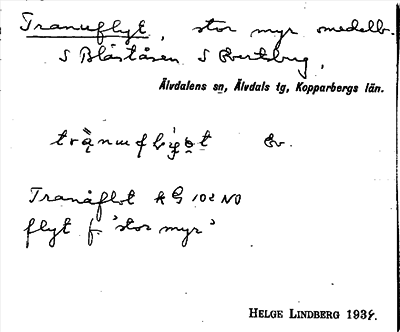 Tranuflyt, stor myr medelb.
S Blåståsen S Evertsberg,
Älvdalens sn, Älvdals tg, Kopparbergs län.
Ev.
Tranåflot KG 102 NO
flyt f. "stor myr"
HELGE LINDBERG 1934.